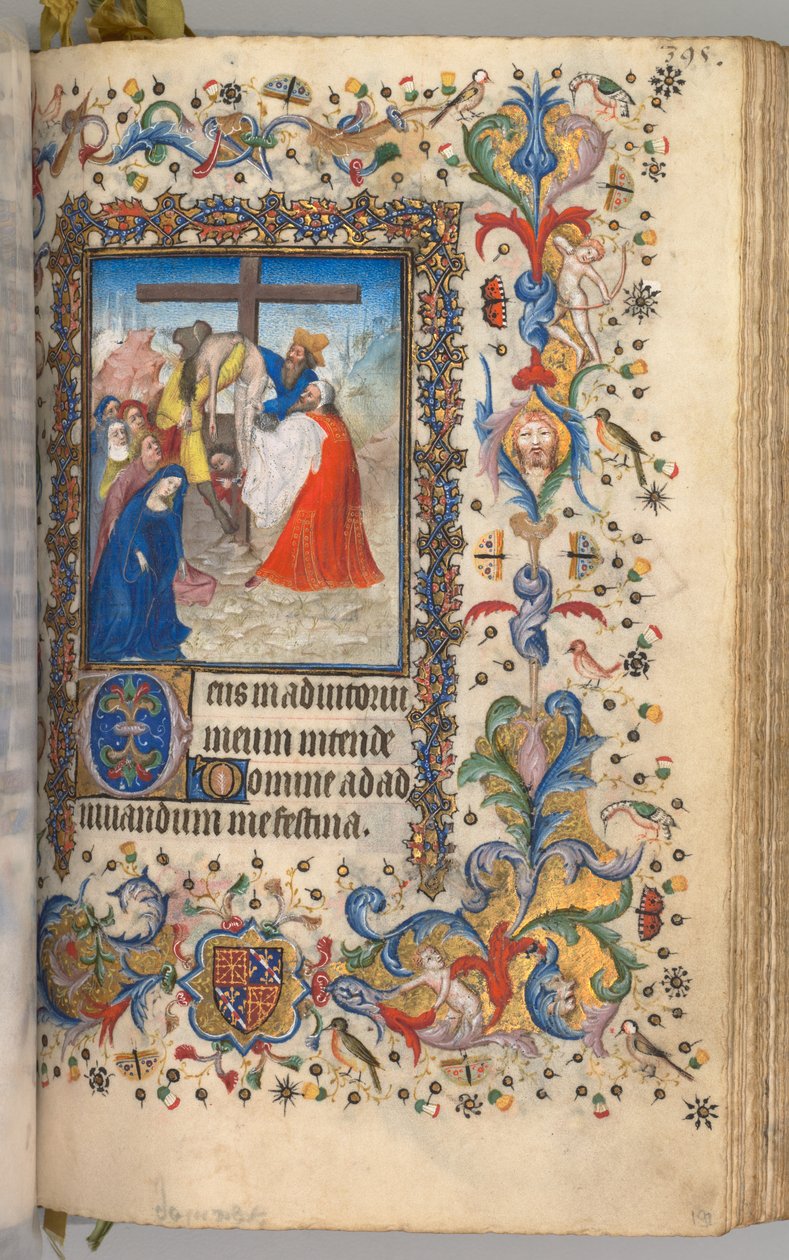 395.
Deus in adiutoriu
meum intende
Domine ad ad
iuuandum me festina.